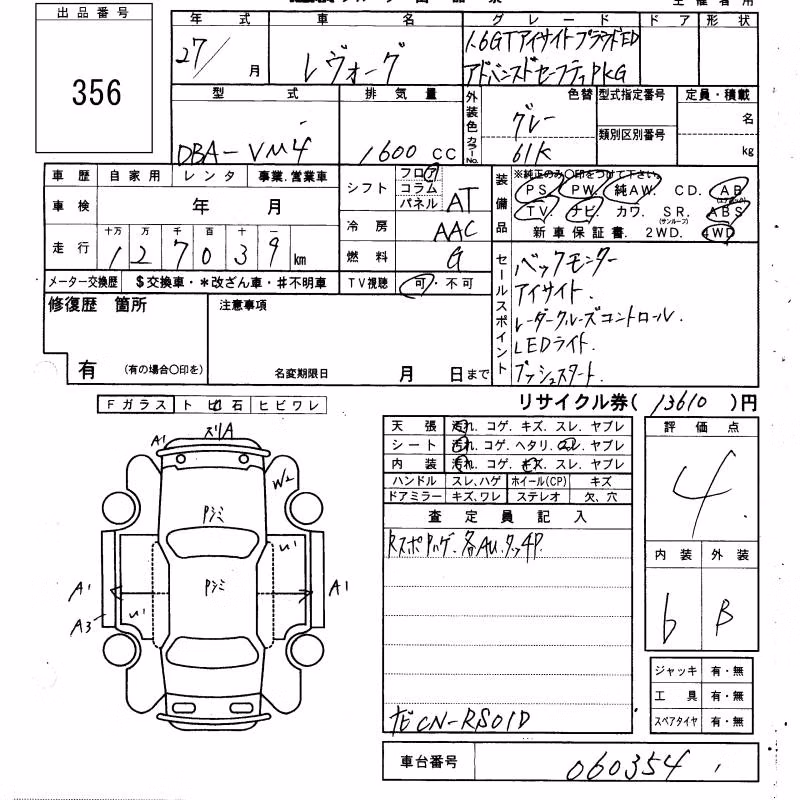 出品番号
356
年式 車名 グレード ドア 形状
27/ 月 レヴォーグ 1.6GTアイサイトブラウドED
アドバンスドセーフティPKG
型式 排気量 外装色 カラーNo. 色替 型式指定番号 定員・積載
DBA-VM4 1600CC グレー 61K 類別区別番号 名 kg
車歴 自家用 レンタ 事業.営業車
車検 年 月
走行 十万 万 千 百 十 一
127039 km
メーター交換歴 $交換車・*改ざん車・#不明車
シフト フロア コラム パネル AT
冷房 AAC
燃料 G
TV視聴 可・不可
装備品 ※純正のみ〇印をつけて下さい。
PS. PW. 純AW. CD. AB
TV. ナビ. カワ. SR. ABS
(サンルーフ)
新車保証書. 2WD. 4WD
セールスポイント
バックモニター
アイサイト.
レーダークルーズコントロール.
LEDライト.
プッシュスタート.
修復歴 箇所
有 (有の場合〇印を)
注意事項
名変期限日 月 日まで
リサイクル券( 13610 )円
Fガラス トビ石 ヒビワレ
天張 汚れ. コゲ. キズ. スレ. ヤブレ
シート 汚れ. コゲ. ヘタリ. スレ. ヤブレ
内装 汚れ. コゲ. キズ. スレ. ヤブレ
ハンドル スレ、ハゲ ホイール(CP) キズ
ドアミラー キズ、ワレ ステレオ 欠、穴
査定員記入
Rスポハゲ. 各AU.タッチP.
ナビCN-RS01D
評価点
4
内装 外装
b B
ジャッキ 有・無
工具 有・無
スペアタイヤ 有・無
車台番号 060354
A1 スリA
W2
Pシミ
U1
Pシミ
A1 A1
U1
A3